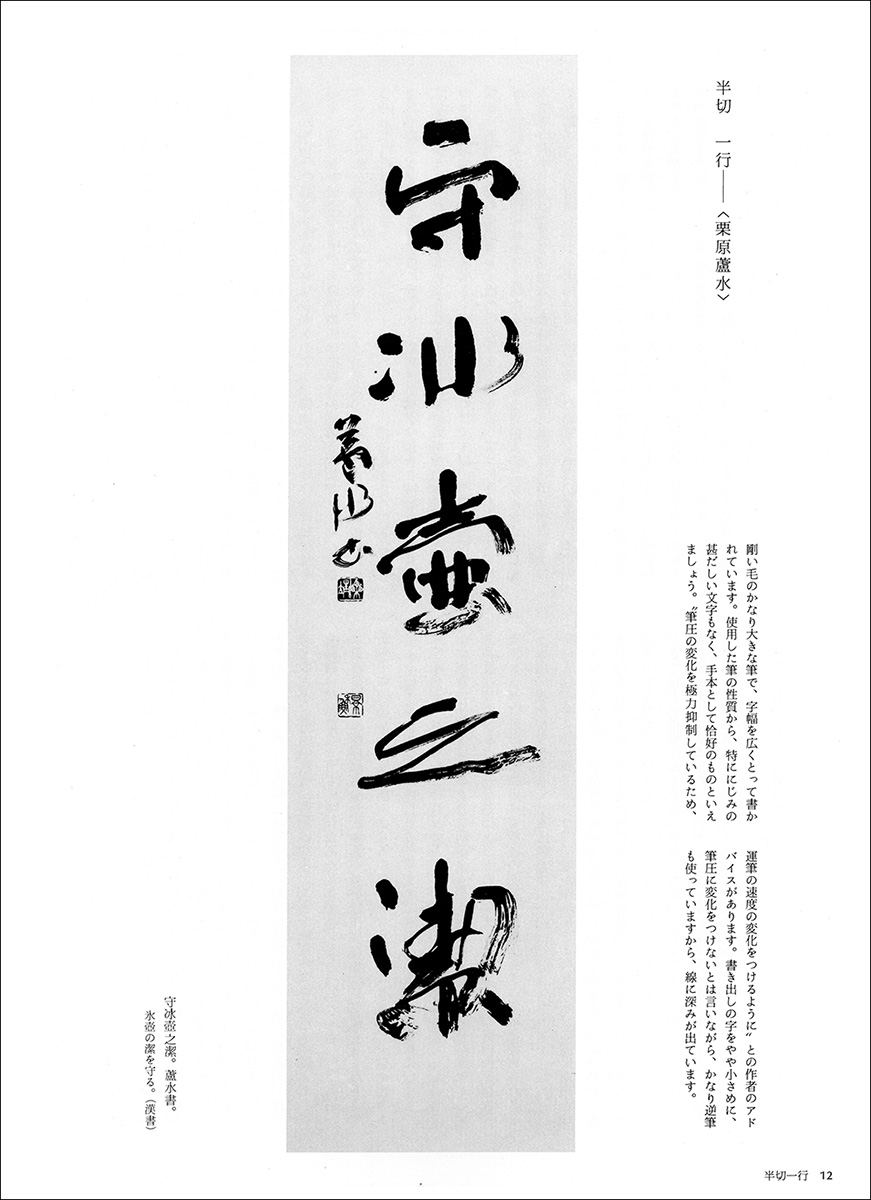 半切　一行――〈栗原蘆水〉
剛い毛のかなり大きな筆で、字幅を広くとって書か
れています。使用した筆の性質から、特ににじみの
甚だしい文字もなく、手本として恰好のものといえ
ましょう。〝筆圧の変化を極力抑制しているため、
運筆の速度の変化をつけるように〟との作者のアド
バイスがあります。書き出しの字をやや小さめに、
筆圧に変化をつけないとは言いながら、かなり逆筆
も使っていますから、線に深みが出ています。
守冰壺之潔
蘆水書
守冰壺之潔。蘆水書。
氷壺の潔を守る。（漢書）
半切一行　12